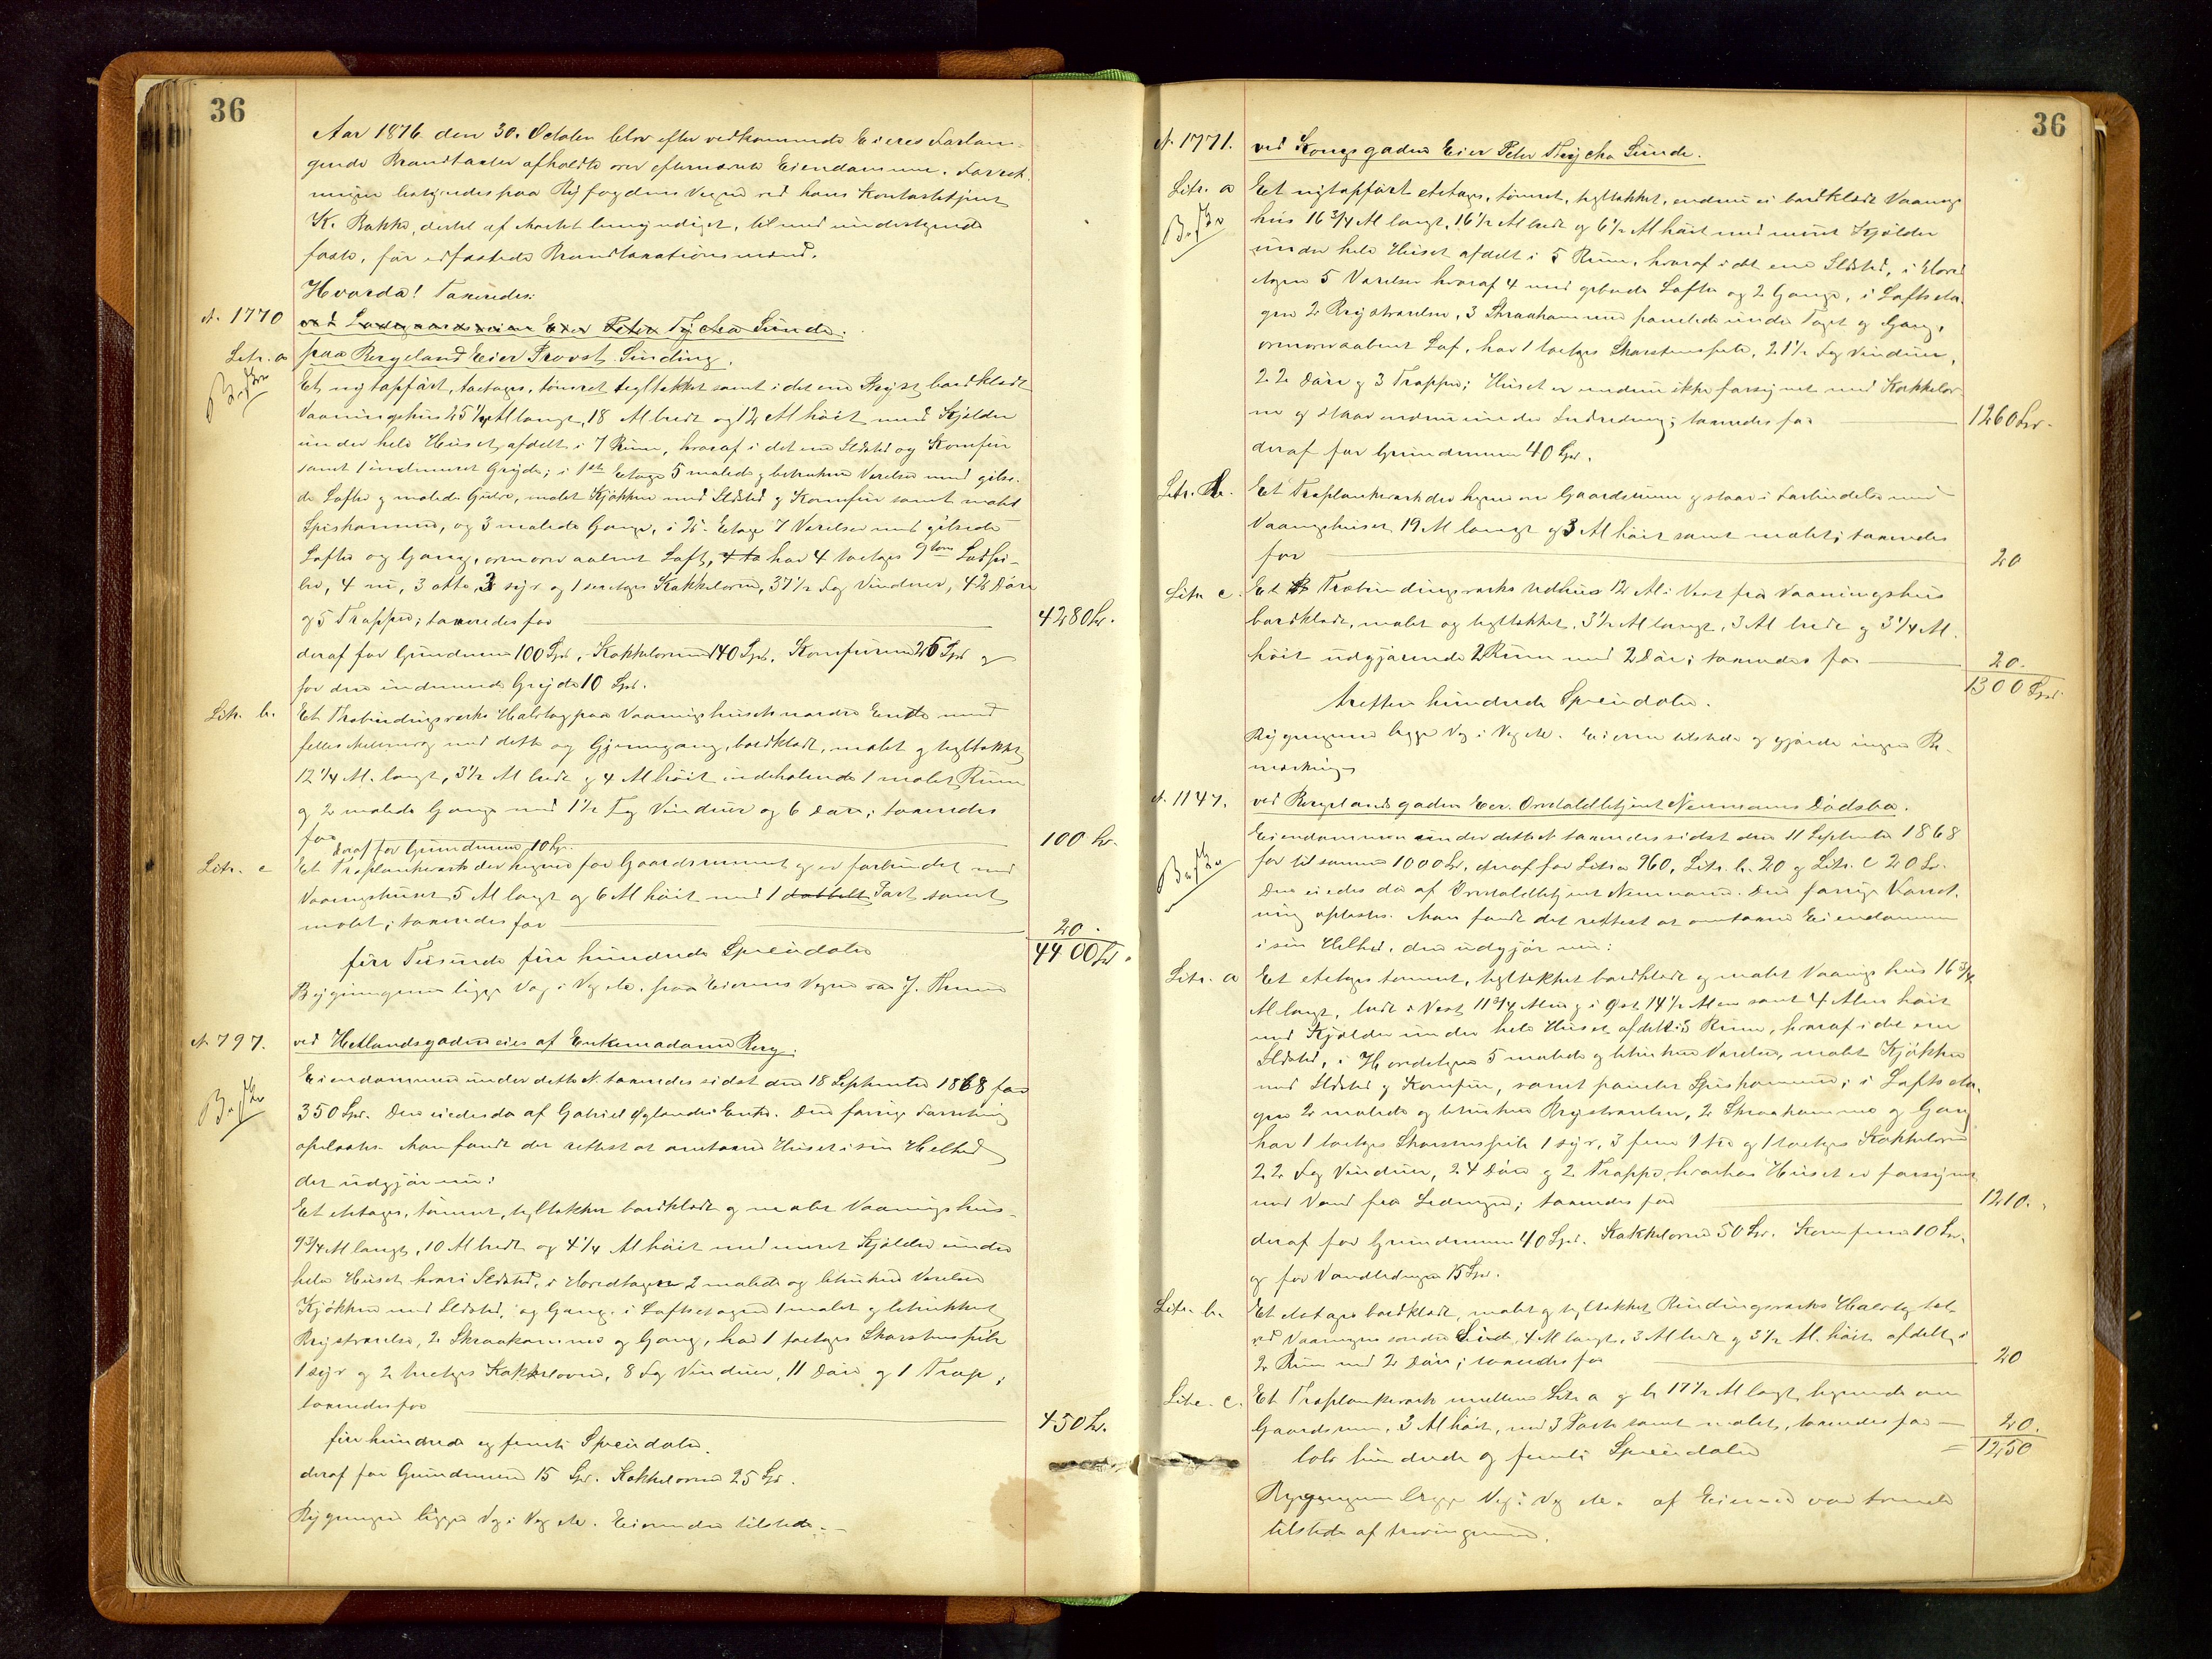 36
Aar 1876 den 30. October blev efter vedkommende Eieres Forlan-
gende Brandtaxter afholdte over efternævnte Eiendomme. Forret-
ningen bestyredes paa Byfogdens Vegne ved hans Kontorbetjent
K. Bakke, dertil af Amtet bemyndiget, til med undertegnede
faste, før edfæstede Brandtaxationsmænd.
Hvorda! Taxeredes:
№ 1770 ved Ladegaardsveien Eier Peter Tycho Sunde.
Litr. a paa Bergeland Eier Provst Sinding.
Et nytopført, toetages, tømret tegltækket samt i det ene Bryst bordklædt
Vaaningshus 25 1/4 Al langt, 18 Al bredt og 12 Al høit med Kjelder
under hele Huset, afdelt i 7 Rum, hvoraf i det ene Ildsted og Komfur
samt 1 indmuret Gryde; i 1ste Etage 5 malede og betrukne Værelser med gibse-
de Lofter og malede Gulve, malet Kjøkken med Ildsted og Komfur samt malet
Spiskammer, og 3 malede Gange, i 2den Etage 7 Værelser med gibsede
Lofter og Gang, ovenover aabent Loft, har 4 toetages
4 ni, 3 otte, 3 syv og 1 Kakkelovne, 37 1/2 Fag Vinduer, 42 Døre
og 5 Trapper; taxeredes for 4280 Spd.
deraf for Grundmuren 100 Spd. Kakkelovnene 140 Spd. Komfurerne 26 Spd og
for den indmurede Gryde 10 Spd.
Litr. b. Et Træbindingsverks Halvtag paa Vaaningshusets nordre Ende med
felles Mellemvæg med dette og Gjennemgang, bordklædt, malet og tegltækket
12 1/4 Al. langt, 3 1/2 Al bredt og 4 Al høit indeholdende 1 malet Rum
og 2 malede Gange med 1 1/2 Fag Vinduer og 6 Døre; taxeredes
for 100 Spd.
deraf for Grundmuren 10 Spd.
Litr. c Et Træplankeværk der hegner for Gaardsrummet og er forbundet med
Vaaningshuset 5 Al langt og 6 Al høit med 1 dobbelt Port samt
malet; taxeredes for 20.
fire Tusinde fire hundrede Speciedaler 4400 Spd.
Bygningerne ligge Væg i Væg etc. paa Eierens Vegne var J.
№ 797. ved Hetlandsgaden eies af Enkemadame Berg.
Eiendommen under dette №. taxeredes sidst den 18 September 1868 for
350 Spd. Den eiedes da af Gabriel Øglænds Enke. Den forrige Forretning
oplæstes. Man fandt det rettest at omtaxere Huset i sin Helhed
der udgjør nu:
Et etetages, tømret, tegltækket bordklædt og malet Vaaningshus
9 3/4 Al langt, 10 Al bredt og 4 1/4 Al høit med muret Kjælder under
hele Huset hvori Ildsted, i Hovedetagen 2 malede og betrukne Værelser
Kjøkken med Ildsted, og Gang. i Loftsetagen 1 malet og betrukket
Brystværelse, 2 Skraakammer og Gang, har 1 toetages Skorstenspibe
1 syv og 2 treetages Kakkelovne, 8 Fag Vinduer, 11 Døre og 1 Trappe;
taxeredes for 450 Spd.
fire hundrede og femti Speciedaler.
deraf for Grundmuren 15 Spd. Kakkelovne 25 Spd.
Bygningen ligger Væg i Væg etc. Eierinden tilstede.
36
№ 1771. ved Kongsgaden Eier Peter Tycho Sunde.
Litr. a Et nytopført etetages, tømret, tegltækket, endnu ei bordklædt Vaanings
hus 16 3/4 Al langt, 16 1/2 Al bredt og 6 1/2 Al høit med muret Kjelder
under hele Huset afdelt i 5 Rum, hvoraf i det ene Ildsted, i Hoved
etagen 5 Værelser hvoraf 4 med gibsede Lofter og 2 Gange, i Loftseta-
gen 2 Brystværelser, 3 Skraakammer panelede under Taget og Gang,
ovenover aabent Loft, har 1 toetages Skorstenspibe, 21 1/2 Fag Vinduer,
22 Døre og 3 Trapper; Huset er endnu ikke forsynet med Kakkelov-
ne og staar endnu under Indredning; taxeredes for 1260 Spd.
deraf for Grundmuren 40 Spd.
Litr. b. Et Træplankeværk der hegner om Gaardsrum og staar i Forbindelse med
Vaaningshuset 19 Al langt og 3 Al høit samt malet; taxeredes
for 20
Litr c. Et Træbindingsværks Udhus 12 Al i Vest fra Vaaningshus
bordklædt, malet og tegltækket, 3 1/2 Al langt, 3 Al bredt og 3 1/4 Al.
høit udgjørende 2 Rum med 2 Døre; taxeredes for 20.
1300 Spd.
tretten hundrede Speciedaler.
Bygningerne ligge Væg i Væg etc. Eieren tilstede og gjorde ingen Be-
mærkning
№ 1147. ved Bergelandsgaden Eier Overtoldbetjent Neumanns Dødsbo.
Eiendommen under dette № taxeredes sidst den 11 September 1868
for tilsammen 1000 Spd, deraf for Litr a 960, Litr. b. 20 og Litr. c 20 Spd.
Den eiedes da af Overtoldbetjent Neumann. Den forrige Forret-
ning oplæstes. Man fandt det rettest at omtaxere Eiendommen
i sin Helhed, den udgjør nu:
Litr. a Et etetages tømret, tegltækket bordklædt og malet Vaaningshus 16 3/4
Al langt, bredt i Vest 11 3/4 Alen og i Øst 14 1/2 Alen samt 4 Alen høit
med Kjælder under hele Huset afdelt i 3 Rum, hvoraf i det ene
Ildsted, i Hovedetagen 5 malede og betrukne Værelser, malet Kjøkken
med Ildsted og Komfur, samt panelet Spiskammer; i Loftseta-
gen 2 malede og betrukne Brystværelser, 2 Skraakammer og Gang
har 1 toetages Skorstenspibe 1 syv, 3 fem 1 tre og 1 toetages Kakkelovn
22 Fag Vinduer, 24 Døre og 2 Trapper, hvorhos Huset er forsynet
med Vand fra Ledningen; taxeredes for 1210.
deraf for Grundmuren 40 Spd. Kakkelovne 50 Spd. Komfuren 10 Spd.
og for Vandledningen 15 Spd.
Litr. b. Et etetages bordklædt, malet og tegltækket Bindingsværks Halvtag
ved Vaaningens søndre Side, 4 Al langt, 3 Al bredt og 3 1/2 Al. høit afdelt i
2 Rum med 2 Døre; taxeredes for 20
Litr. c. Et Træplankeværk mellem Litr a og b 17 1/2 Al langt, hegnende om
Gaardsrum, 3 Al høit, med 3 Porte samt malet, taxeredes for 20.
tolv hundrede og femti Speciedaler = 1250
Bygningerne ligge Væg i Væg etc. af Eierne var
tilstede af